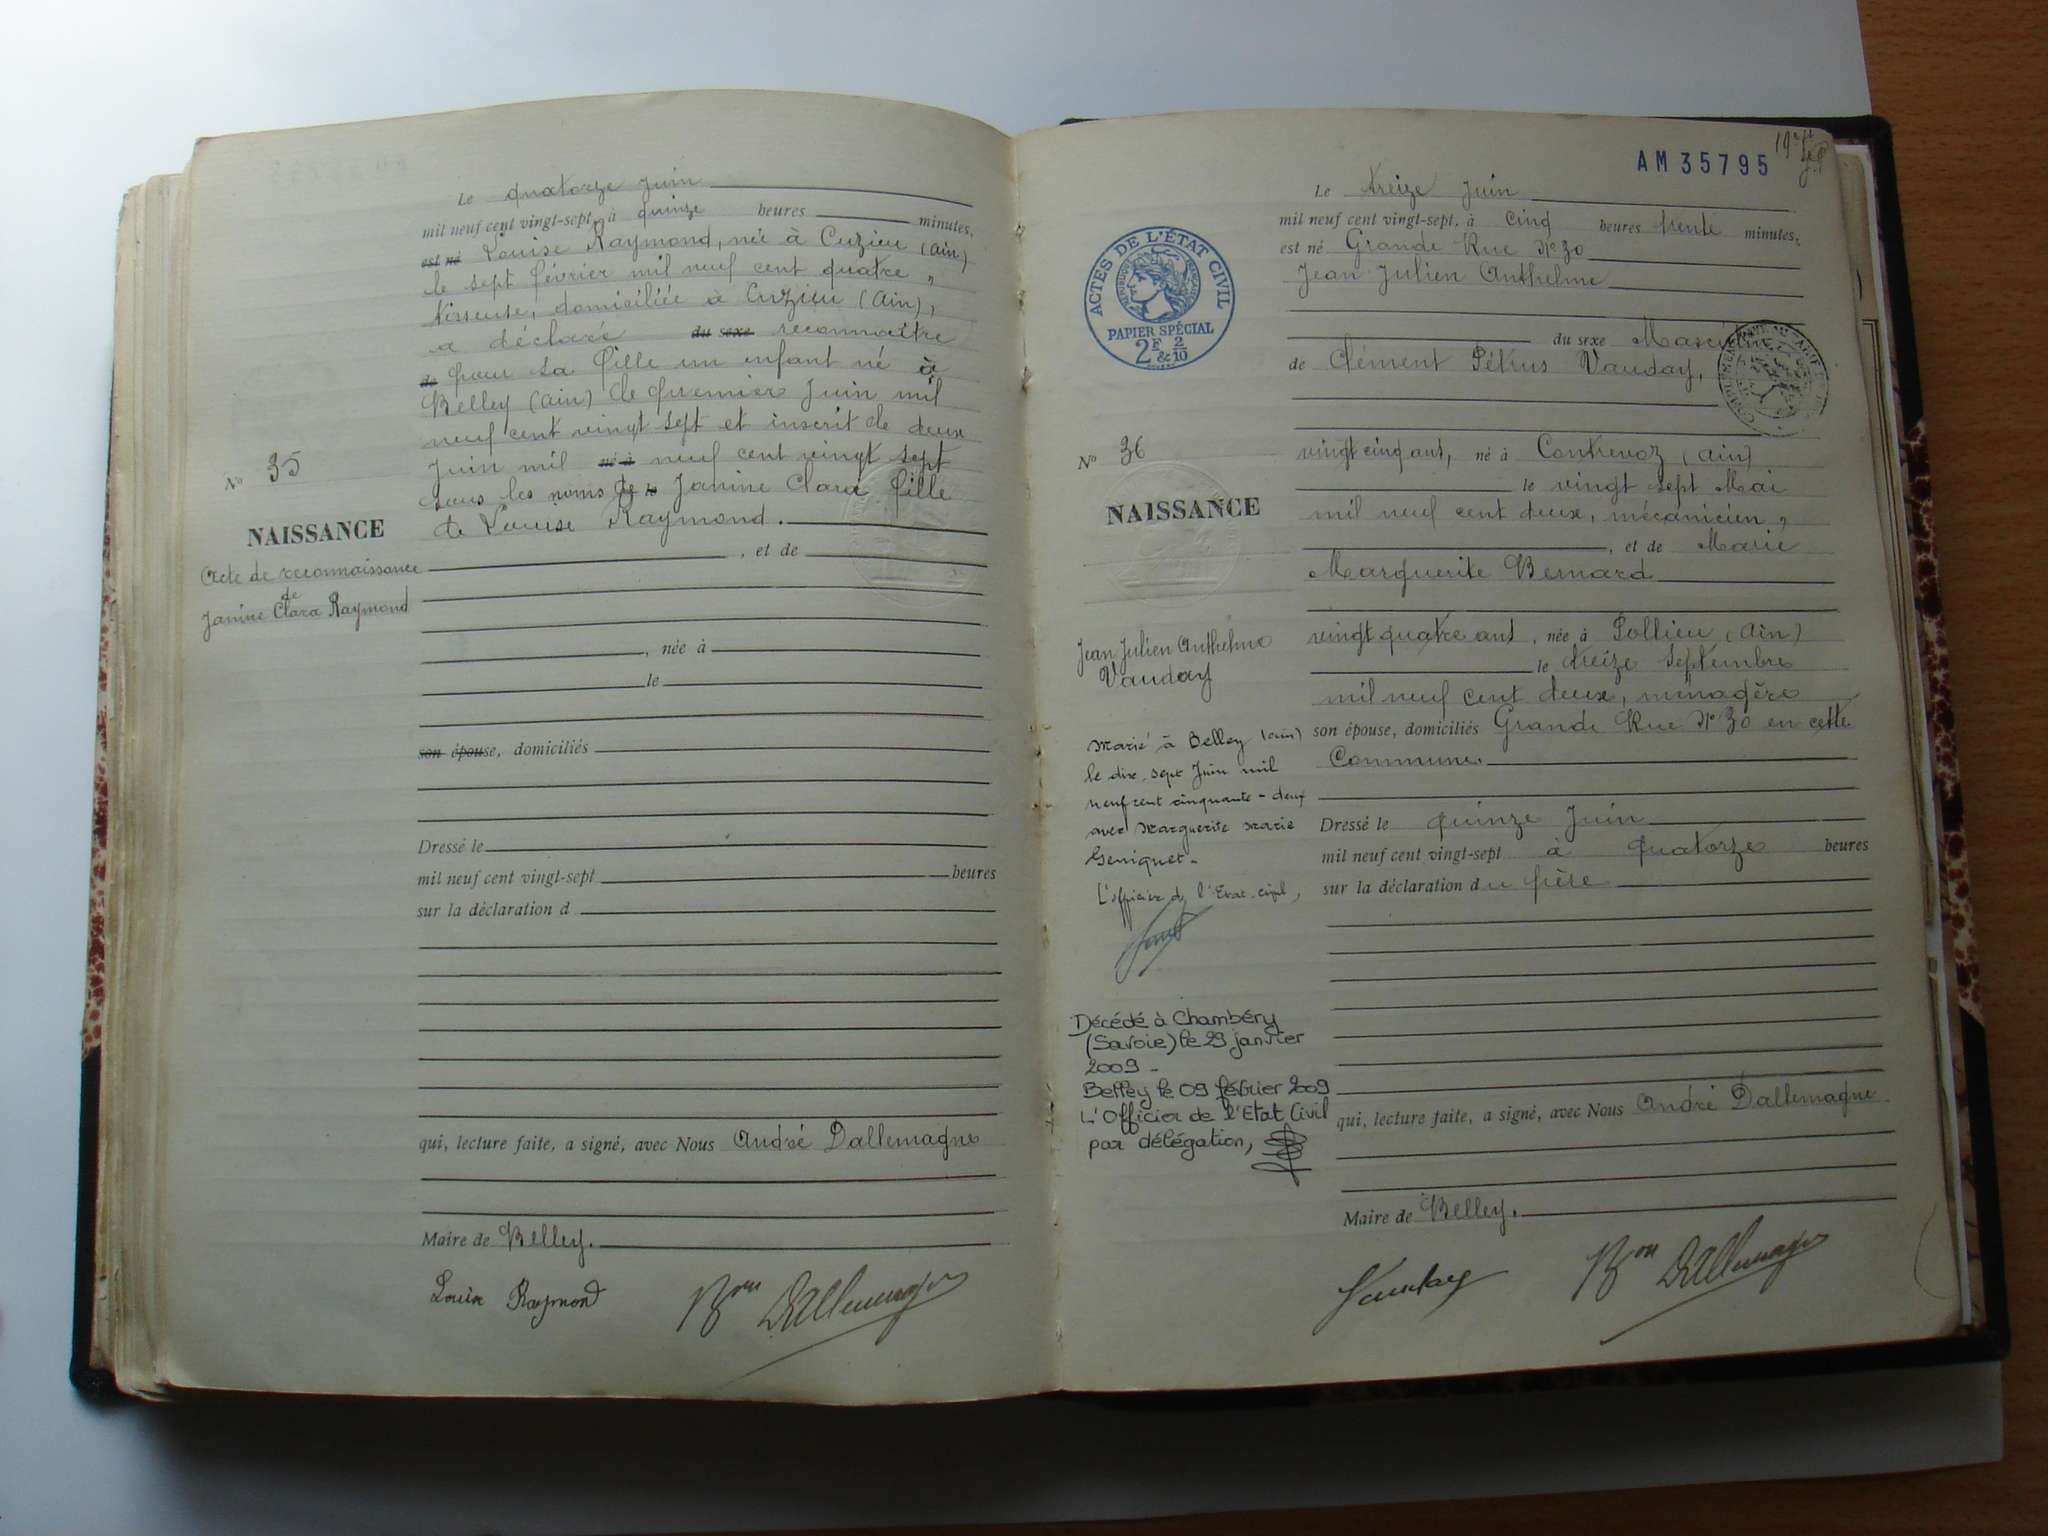 Le quatorze Juin
mil neuf cent vingt-sept, à quinze heures minutes,
est né Louise Raymond, née à Cuzieu (Ain)
le sept février mil neuf cent quatre,
tisseuse, domiciliée à Cuzieu (Ain),
a déclaré du sexe reconnaître
de pour sa fille un enfant né à
Belley (Ain) le premier Juin mil
neuf cent vingt sept et inscrit le deux
Juin mil né à neuf cent vingt sept
sous les noms de le Janine Clara fille
de Louise Raymond.
N° 35
NAISSANCE
Acte de reconnaissance
de
Janine Clara Raymond
, et de
, née à
le
son épouse, domiciliés
Dressé le
mil neuf cent vingt-sept heures
sur la déclaration d
qui, lecture faite, a signé, avec Nous André Dallemagne
Maire de Belley.
Louise Raymond Bon Dallemagne
AM 35795
ACTES DE L'ÉTAT CIVIL
RÉPUBLIQUE FRANÇAISE
PAPIER SPÉCIAL
2F & 2/10
Le treize Juin
mil neuf cent vingt-sept, à cinq heures trente minutes,
est né Grande Rue N° 30
Jean Julien Anthelme
du sexe Masculin
de Clément Pétrus Vauday,
vingt cinq ans, né à Contrevoz (Ain)
le vingt sept Mai
mil neuf cent deux, mécanicien,
, et de Marie
Marguerite Bernard
vingt quatre ans, née à Pollieu (Ain)
le treize Septembre
mil neuf cent deux, ménagère
son épouse, domiciliés Grande Rue N° 30 en cette
Commune.
Dressé le quinze Juin
mil neuf cent vingt-sept à quatorze heures
sur la déclaration du père
qui, lecture faite, a signé, avec Nous André Dallemagne
Maire de Belley.
Vauday Bon Dallemagne
N° 36
NAISSANCE
Jean Julien Anthelme
Vauday
Marié à Belley (Ain)
le dix sept Juin mil
neuf cent cinquante-deux
avec Marguerite Marie
Geniquet-
L'officier de l'Etat-civil,
Décédé à Chambéry
(Savoie) le 29 janvier
2009-
Belley le 09 février 2009
L'Officier de l'Etat Civil
par délégation,